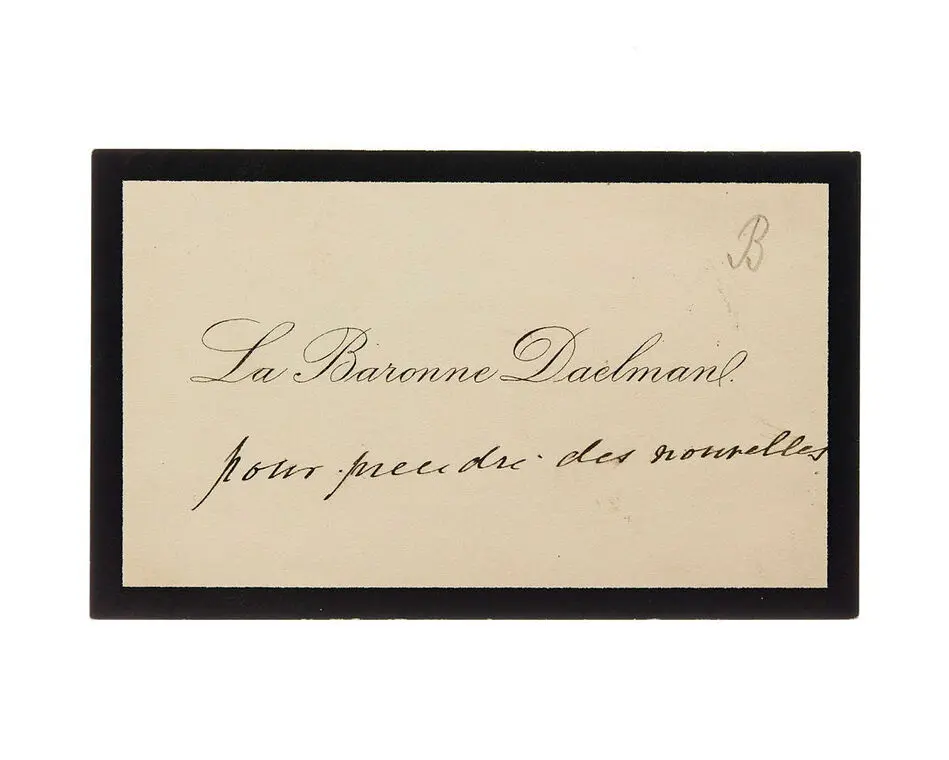 B
La Baronne Daelman.
pour prendre des nouvelles